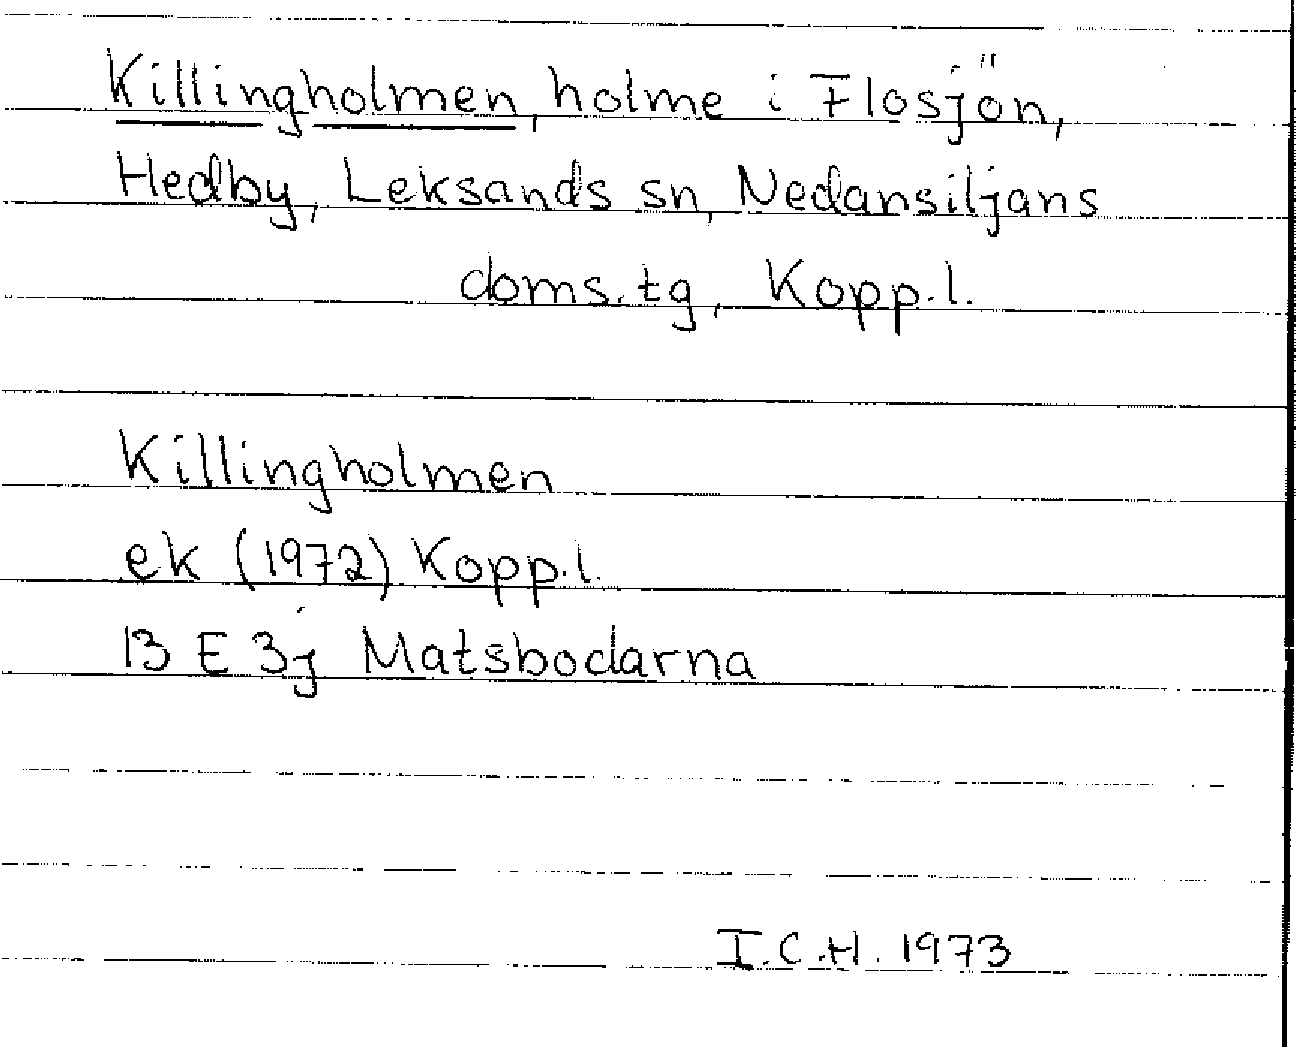 Killingholmen, holme i Flosjön,
Hedby, Leksands sn, Nedansiljans
doms.tg, Kopp.l.
Killingholmen
ek (1972) Kopp.l.
13 E 3j Matsbodarna
I.C.H. 1973